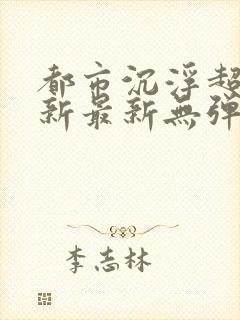 都市沉浮超
新最新無弹
李志林